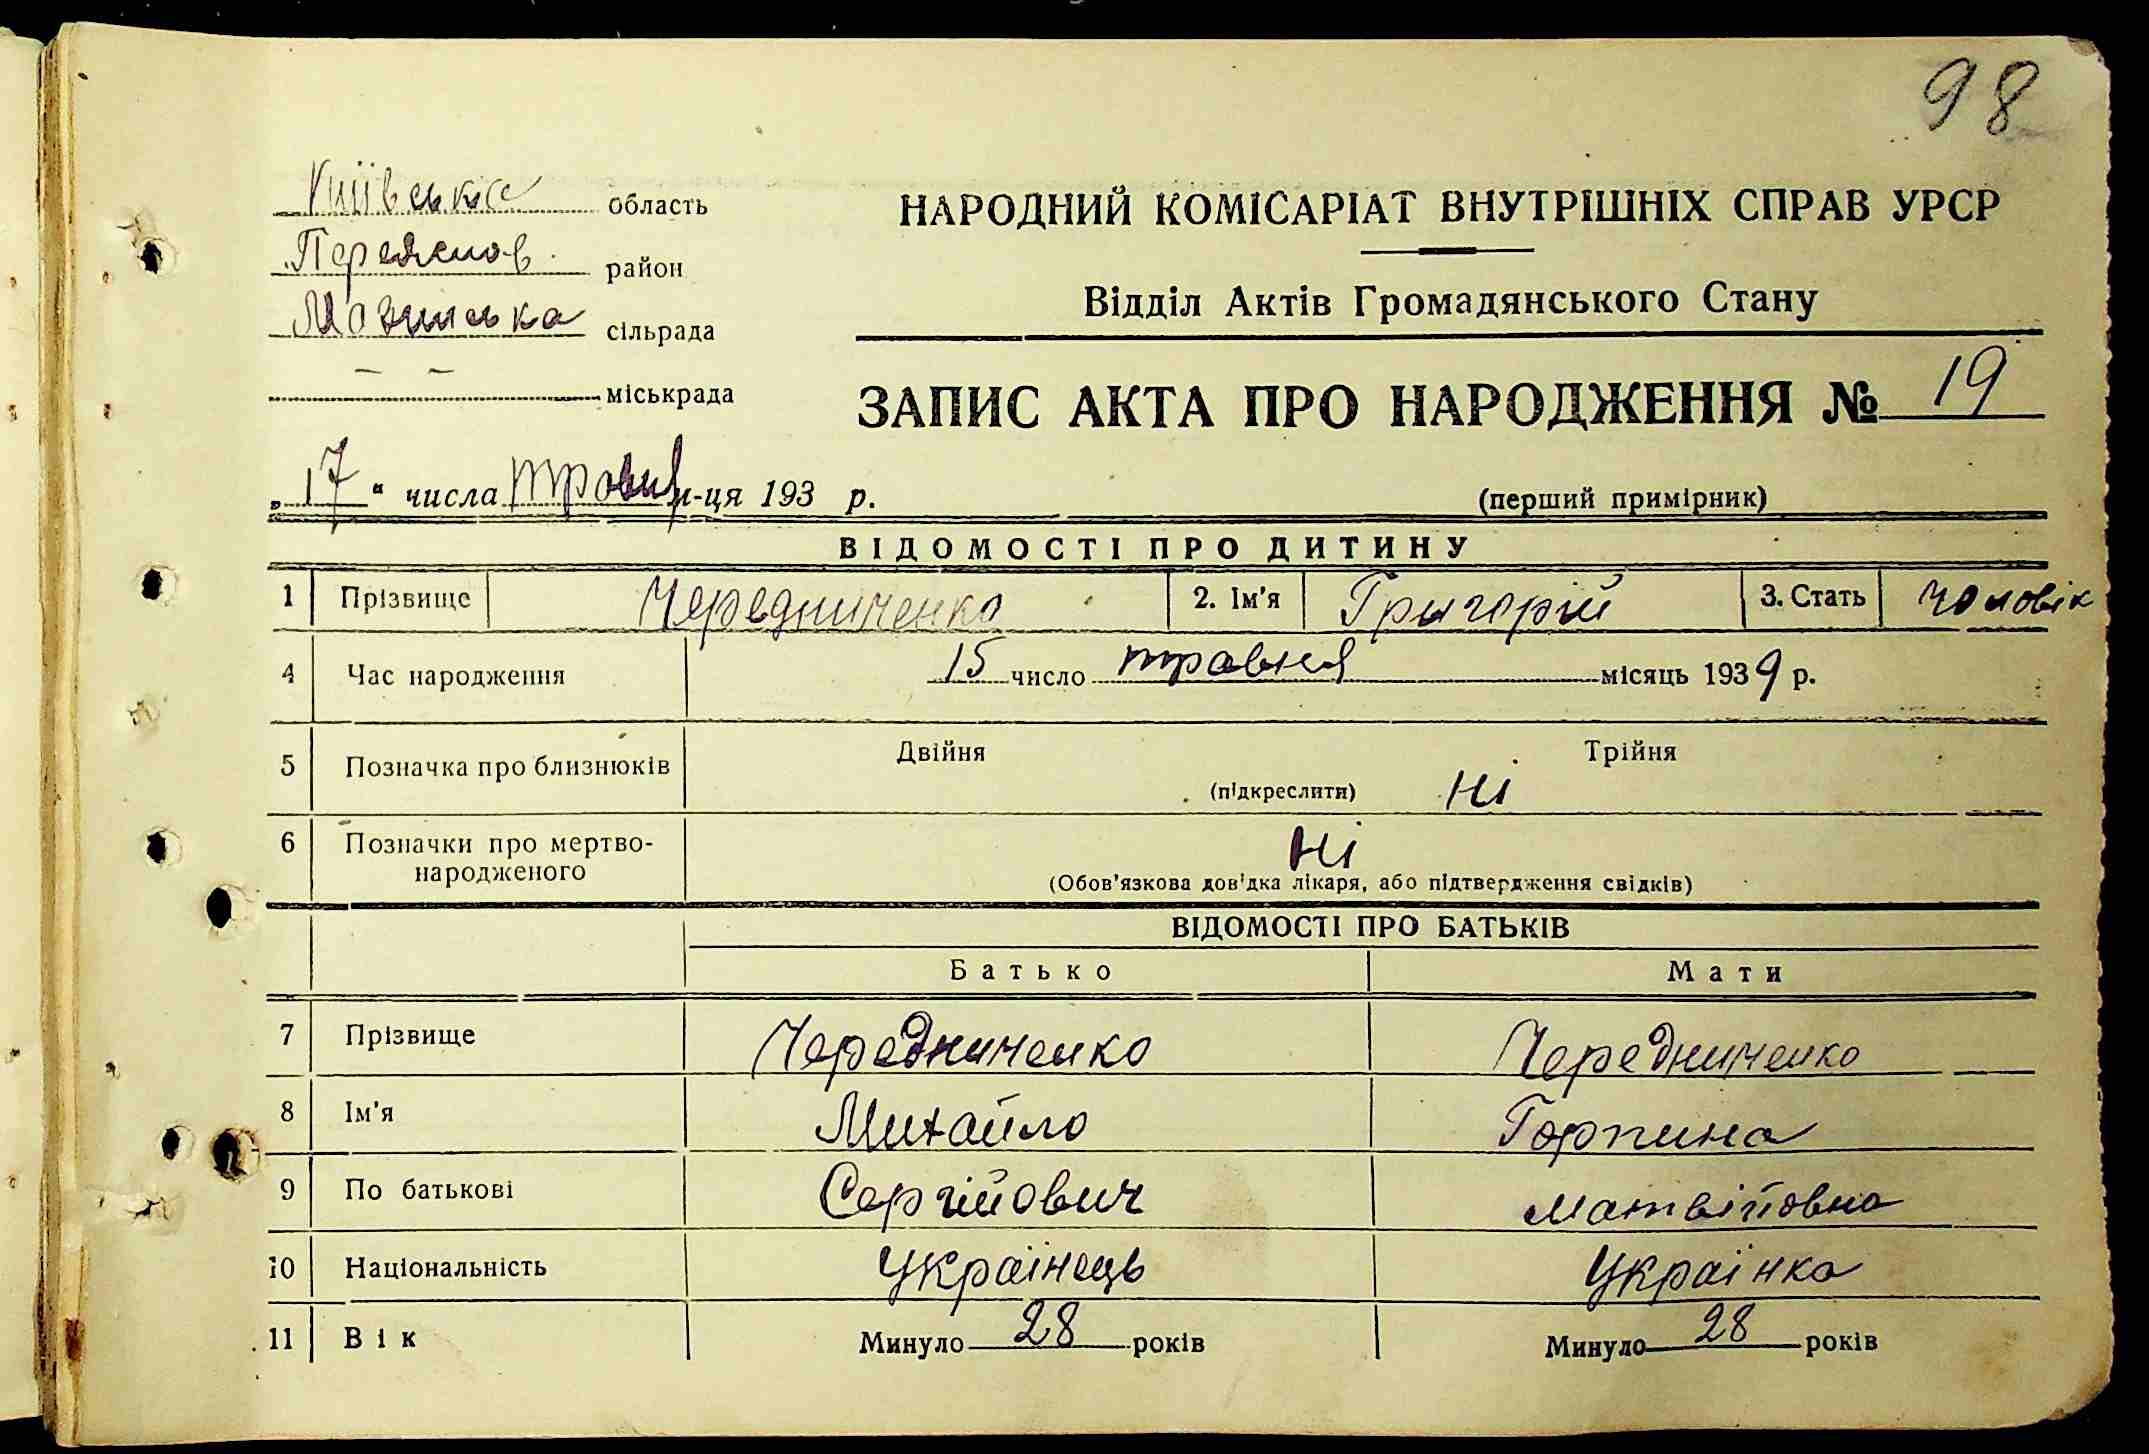 98
Київська область
Переяслов. район
сільрада
— — міськрада
НАРОДНИЙ КОМІСАРІАТ ВНУТРІШНІХ СПРАВ УРСР
Відділ Актів Громадянського Стану
ЗАПИС АКТА ПРО НАРОДЖЕННЯ № 19
„17“ числа травня м-ця 193 р.
(перший примірник)
ВІДОМОСТІ ПРО ДИТИНУ
1 Прізвище Чередниченко 2. Ім'я Григорій 3. Стать чоловік
4 Час народження 15 число травня місяць 1939 р.
5 Позначка про близнюків Двійня Трійня
(підкреслити) Ні
6 Позначки про мертво- Ні
народженого (Обов'язкова довідка лікаря, або підтвердження свідків)
ВІДОМОСТІ ПРО БАТЬКІВ
Батько Мати
7 Прізвище Чередниченко Чередниченко
8 Ім'я Михайло Горпина
9 По батькові Сергійович Матвійовна
10 Національність Українець Українка
11 Вік Минуло 28 років Минуло 28 років